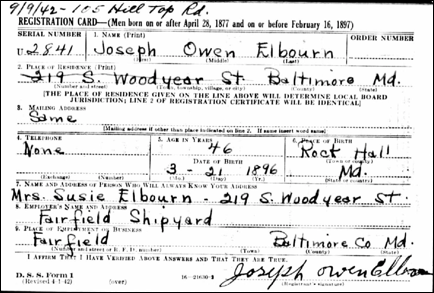 9/9/42-105 Hill Top Rd.
REGISTRATION CARD—(Men born on or after April 28, 1877 and on or before February 16, 1897)
SERIAL NUMBER 1. NAME (Print) ORDER NUMBER
U 2841 Joseph Owen Elbourn
(First) (Middle) (Last)
2. PLACE OF RESIDENCE (Print)
219 S. Woodyear St. Baltimore Md.
(Number and street) (Town, township, village, or city) (County) (State)
[THE PLACE OF RESIDENCE GIVEN ON THE LINE ABOVE WILL DETERMINE LOCAL BOARD
JURISDICTION; LINE 2 OF REGISTRATION CERTIFICATE WILL BE IDENTICAL]
3. MAILING ADDRESS
Same
[Mailing address if other than place indicated on line 2. If same insert word same]
4. TELEPHONE 5. AGE IN YEARS 6. PLACE OF BIRTH
None 46 Rock Hall
DATE OF BIRTH (Town or county)
3 - 21 1896 Md.
(Exchange) (Number) (Mo.) (Day) (Yr.) (State or country)
7. NAME AND ADDRESS OF PERSON WHO WILL ALWAYS KNOW YOUR ADDRESS
Mrs. Susie Elbourn - 219 S. Woodyear St
8. EMPLOYER'S NAME AND ADDRESS
Fairfield Shipyard
9. PLACE OF EMPLOYMENT OR BUSINESS
Fairfield Baltimore Co Md.
(Number and street or R. F. D. number) (Town) (County) (State)
I AFFIRM THAT I HAVE VERIFIED ABOVE ANSWERS AND THAT THEY ARE TRUE.
D. S. S. Form 1 Joseph Owen Elbourn
(Revised 4-1-42) (over) (Registrant's signature)